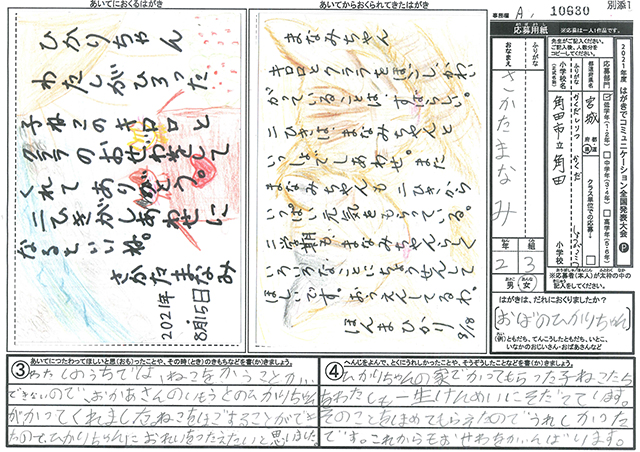 あいてにおくるはがき
ひかりちゃん
わたしがひろった
子ねこのキロロと
クララのおせわをして
くれてありがとう。
二ひきがしあわせに
なるといいね。
さかたまなみ
2021年
8月15日
あいてからおくられてきたはがき
まなみちゃん
キロロとクララをほごし、かわい
がっていることは、すばらしい。
二ひきは、まなみちゃんと
いっしょでしあわせ。また
まなみちゃんも二ひきから
いっぱい元気をもらっている。
二学期も、まなみちゃんらしく
いろいろなことにちょうせんして
ほしいです。おうえんしてるね。
ほんまひかり
9/18
事務欄 A, 10630
別添1
応募用紙
※応募は一人1作品です。
先生がご記入ください。
ご記入後、人数分を
コピーしてください。
2021年度 はがきでコミュニケーション全国発表大会 P
応募部門
低学年(1・2年)
中学年(3・4年)
高学年(5・6年)
クラス単位での応募
都道府県名
宮城
小学校名
(正式名称)
ふりがな
かくだしりつ かくだ
角田市立角田
小学校
ふりがな
おなまえ
さかたまなみ
年 組
2 3
男・女
※応募者(本人)が太枠の中の
記入をしてください。
はがきは、だれにおくりましたか?
おばのひかりちゃん
(例)ともだち、てんこうしたともだち、いとこ、
いなかのおじいさん・おばあさんなど
③ あいてにつたわってほしいと思(おも)ったことや、その時(とき)のきもちなどを書(か)きましょう。
わたしのうちでは、ねこをかうことが
できないので、おかあさんのいもうとのひかりちゃん
がかってくれました。ねこをほごすることができ
たので、ひかりちゃんにおれいをつたえたいと思いました。
④ へんじをよんで、とくにうれしかったことや、そうぞうしたことなどを書(か)きましょう。
ひかりちゃんの家でかってもらった子ねこたち
をわたしも一生けんめいにそだてています。
そのことをほめてもらえたのでうれしかった
です。これからもおせわをがんばります。